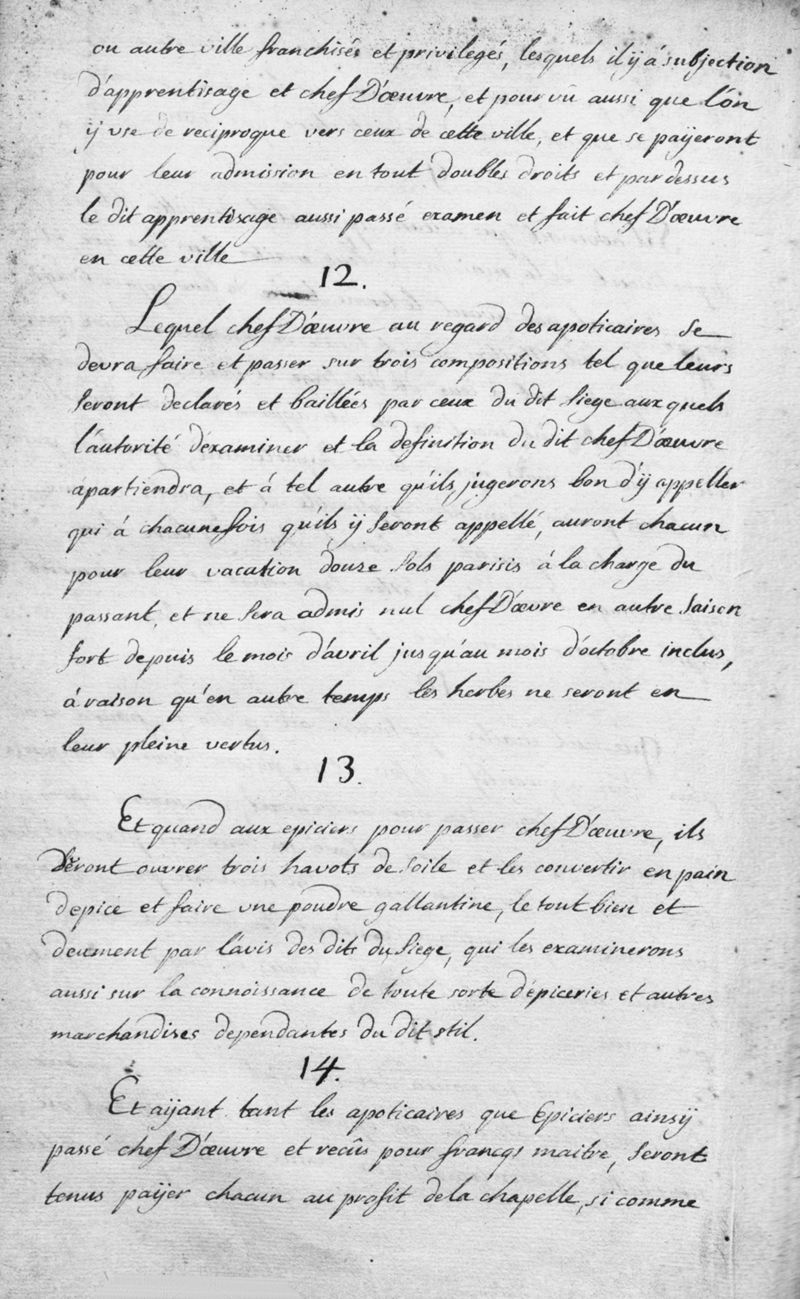 ou autre ville franchisés et privilegés, lesquels il ÿ á subjection
d'apprentisage et chef D'œuvre, et pour vû aussi que l'on
ÿ vse de reciproque vers ceux de cette ville, et que se paÿeront
pour leur admission en tout doubles droits et par dessus
le dit apprentisage aussi passé examen et fait chef D'œuvre
en cette ville
12.
Lequel chef D'œuvre au regard des apoticaires se
devra faire et passer sur trois compositions tel que leurs
seront declarés et baillées par ceux du dit siege aux quels
l'autorité d'examiner et la definition du dit chef D'œuvre
apartiendra, et á tel autre qu'ils jugerons bon d'ÿ appeller
qui á chacune fois qu'ils ÿ seront appellé, auront chacun
pour leur vacation douze sols parisis á la charge du
passant, et ne sera admis nul chef D'œuvre en autre saison
fort depuis le mois d'avril jusqu'au mois d'octobre inclus,
á raison qu'en autre temps les herbes ne seront en
leur pleine vertus.
13
Et quand aux epiciers pour passer chef D'œuvre, ils
devront ouvrer trois havots de soile et les convertir en pain
d'epice et faire vne poudre gallantine, le tout bien et
deument par l'avis des dits du siege, qui les examinerons
aussi sur la connoissance de toute sorte d'épiceries et autres
marchandises dependantes du dit stil.
14.
Et aÿant tant les apoticaires que Epiciers ainsÿ
passé chef D'œuvre et recûs pour francqs maitre, seront
tenus paÿer chacun au profit de la chapelle, si comme